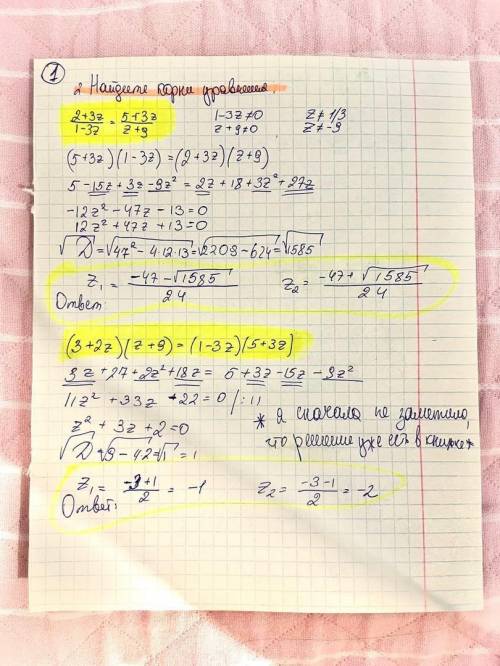 1
2 Найдите корни уравнения.
(2+3z)/(1-3z) = (5+3z)/(z+9) 1-3z≠0 z≠1/3
z+9≠0 z≠-9
(5+3z)(1-3z)=(2+3z)(z+9)
5-15z+3z-9z²=2z+18+3z²+27z
-12z²-47z-13=0
12z²+47z+13=0
√D=√47²-4·12·13=√2209-624=√1585
z₁=(-47-√1585)/24 z₂=(-47+√1585)/24
Ответ
(3+2z)(z+9)=(1-3z)(5+3z)
3z+27+2z²+18z=5+3z-15z-9z²
11z²+33z+22=0/:11
z²+3z+2=0
* я сначала не заметила,
что решение уже есть в книжке*
√D=√9-42=√1=1
z₁=(-3+1)/2=-1 z₂=(-3-1)/2=-2
Ответ: